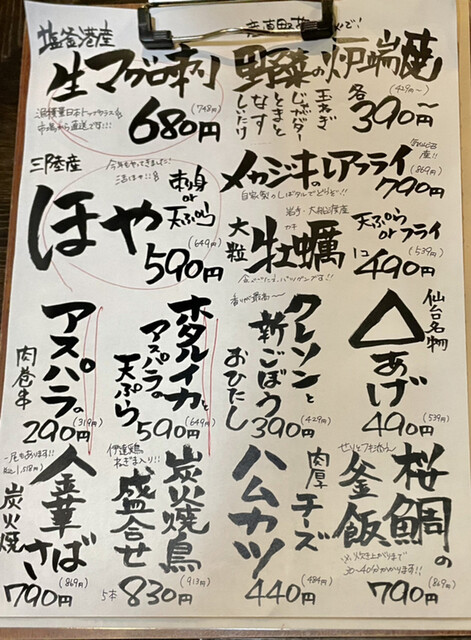 塩釜港産
生マグロ刺
水揚量日本トップクラスの
市場から直送です!!!
680円
(748円)
野菜の炉端焼
玉ねぎ
じゃがバター
とまと
なす
しいたけ
各
390円〜
(429円〜)
三陸産
ほや
今年もやってきました!
刺身
or
天ぷら
590円
(649円)
メカジキのレアフライ
自家製のしばタルでどうぞ!!
790円
(869円)
大粒
牡蠣
カキ
岩手・大船渡産
天ぷら
orフライ
に
490円
(539円)
アスパラの
肉巻串
290円
(319円)
ホタルイカと
アスパラの
天ぷら
590円
(649円)
香りが最高〜
クレソンと
新ごぼう
おひたし
390円
(429円)
仙台名物
△
あげ
490円
(539円)
一尾もあります!!
金華さば
炭火焼
790円
(869円)
伊達鶏
ねぎま入り!!
炭火焼鳥
盛合せ
5本
830円
(913円)
肉厚
チーズ
ハムカツ
440円
(484円)
せりとフキ添え
桜鯛の
釜飯
※炊き上がりまで
30〜40分かかります!!
790円
(869円)